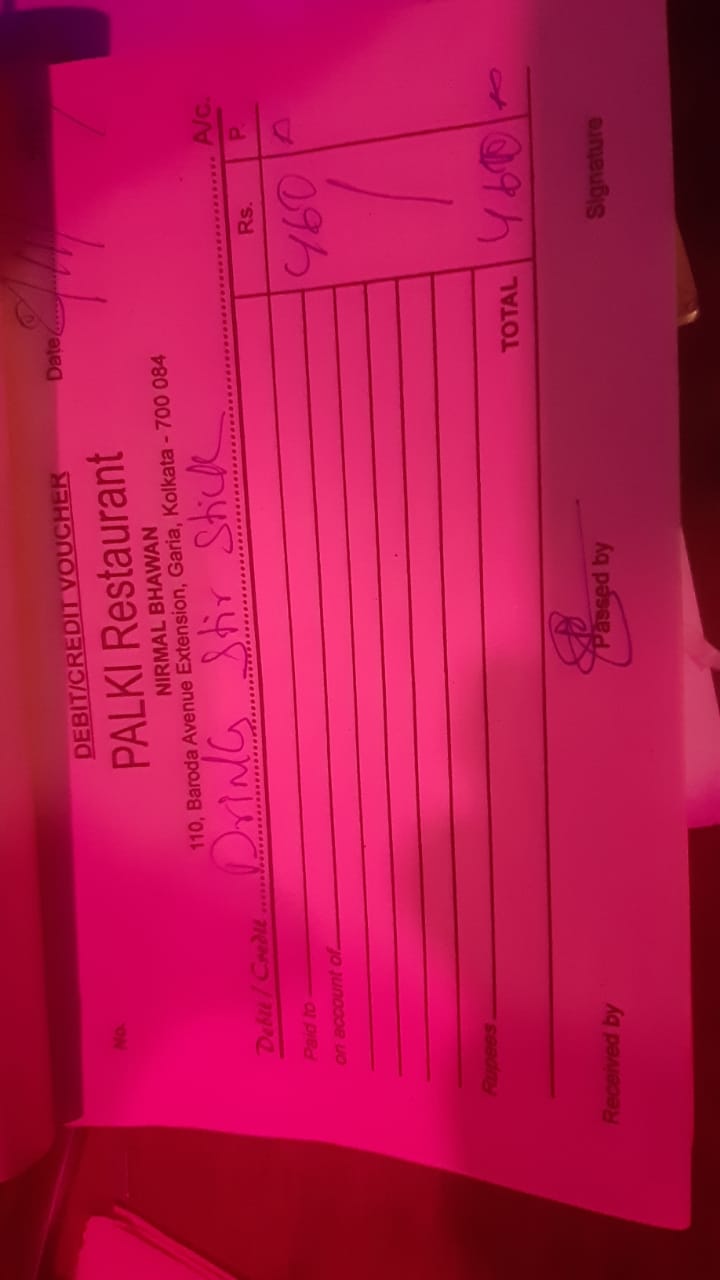 DEBIT/CREDIT VOUCHER
No. Date
PALKI Restaurant
NIRMAL BHAWAN
110, Baroda Avenue Extension, Garia, Kolkata - 700 084
Debit / Credit Drink Stir Stick A/c.
Rs. P.
Paid to 460
on account of
Rupees TOTAL 460
Received by Passed by Signature